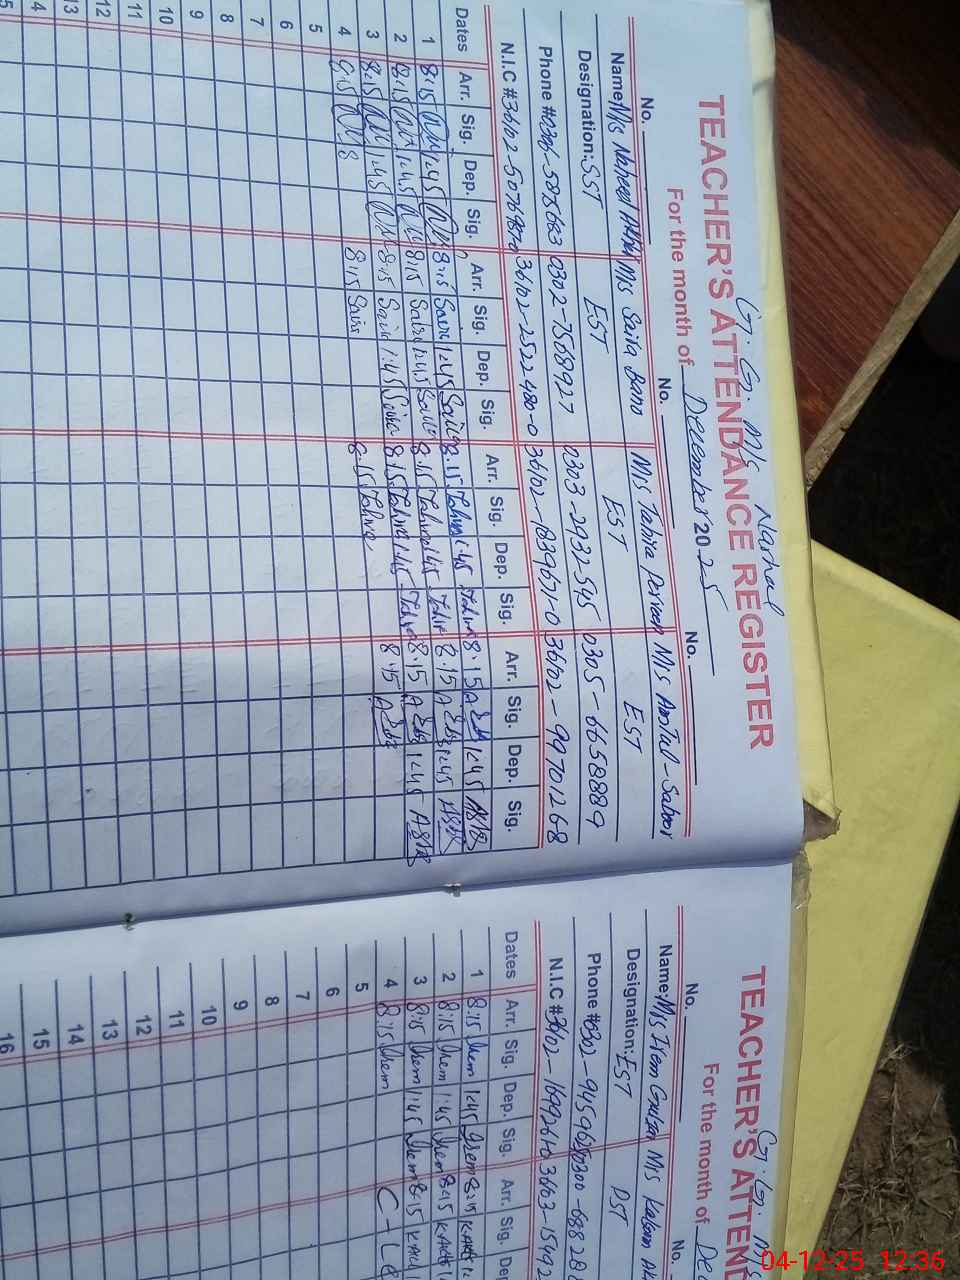 G. G. M/S Narhal
TEACHER'S ATTENDANCE REGISTER
For the month of December 2025
No. No. No.
Name: Mrs Naheed Mrs Saira Bano Mrs Tahira Perveen Mrs Amtul-Saboor
Designation: SST EST EST EST
Phone # 0302-7568927 0303-2932545 0305-6658889
N.I.C # 36102-5076987-0 36102-2522480-0 36102-1839671-0 36102-9970126-8
Dates Arr. Sig. Dep. Sig. Arr. Sig. Dep. Sig. Arr. Sig. Dep. Sig. Arr. Sig. Dep. Sig.
1 8:15 1:45 8:15 Saira 1:45 Saira 8:15 Tahira 1:45 Tahira 8:15 1:45
2 8:15 1:45 8:15 Saira 1:45 Saira 8:15 Tahira 1:45 Tahira 8:15 1:45
3 8:15 1:45 8:15 Saira 1:45 Saira 8:15 Tahira 1:45 Tahira 8:15 1:45
4 8:15 8:15 Saira 8:15 Tahira 8:15
5
6
7
8
9
10
11
12
13
14
G. G. M/S
TEACHER'S ATTEND
For the month of Dec
No. No.
Name: Mrs Irem Gulzar Mrs Kalsom
Designation: EST DST
Phone # 0302-945962 0300-688
N.I.C # 36102-
Dates Arr. Sig. Dep. Sig. Arr. Sig. Dep.
1 8:15 Irem 1:45 Irem 8:15
2 8:15 Irem 1:45 Irem 8:15
3 8:15 Irem 1:45 Irem 8:15
4 8:15 Irem C-L
5
6
7
8
9
10
11
12
13
14
15
16
04-12-25 12:36